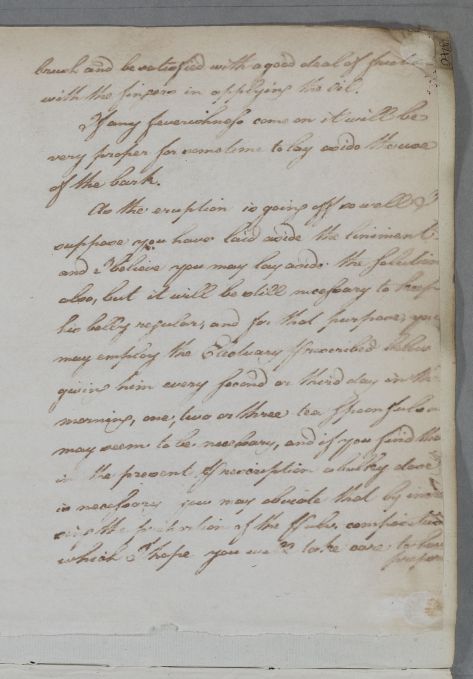 brush and be satisfied with a good deal of friction
with the fingers in applying the Oil.
If any feverishness come on it will be
very proper for sometime to lay aside the use
of the bark.
As the eruption is going off so well I
suppose you have laid aside the liniment
and I believe you may lay aside the Solution
also, but it will be still necessary to keep
his belly regular, and for that purpose you
may employ the Electuary prescribed below
giving him every second or third day in the
morning, one, two or three tea spoonfuls as
may seem to be necessary, and if you find that
in the present prescription a bulky dose
is necessary you may obviate that by
the proportion of the
which I hope you will take care to have